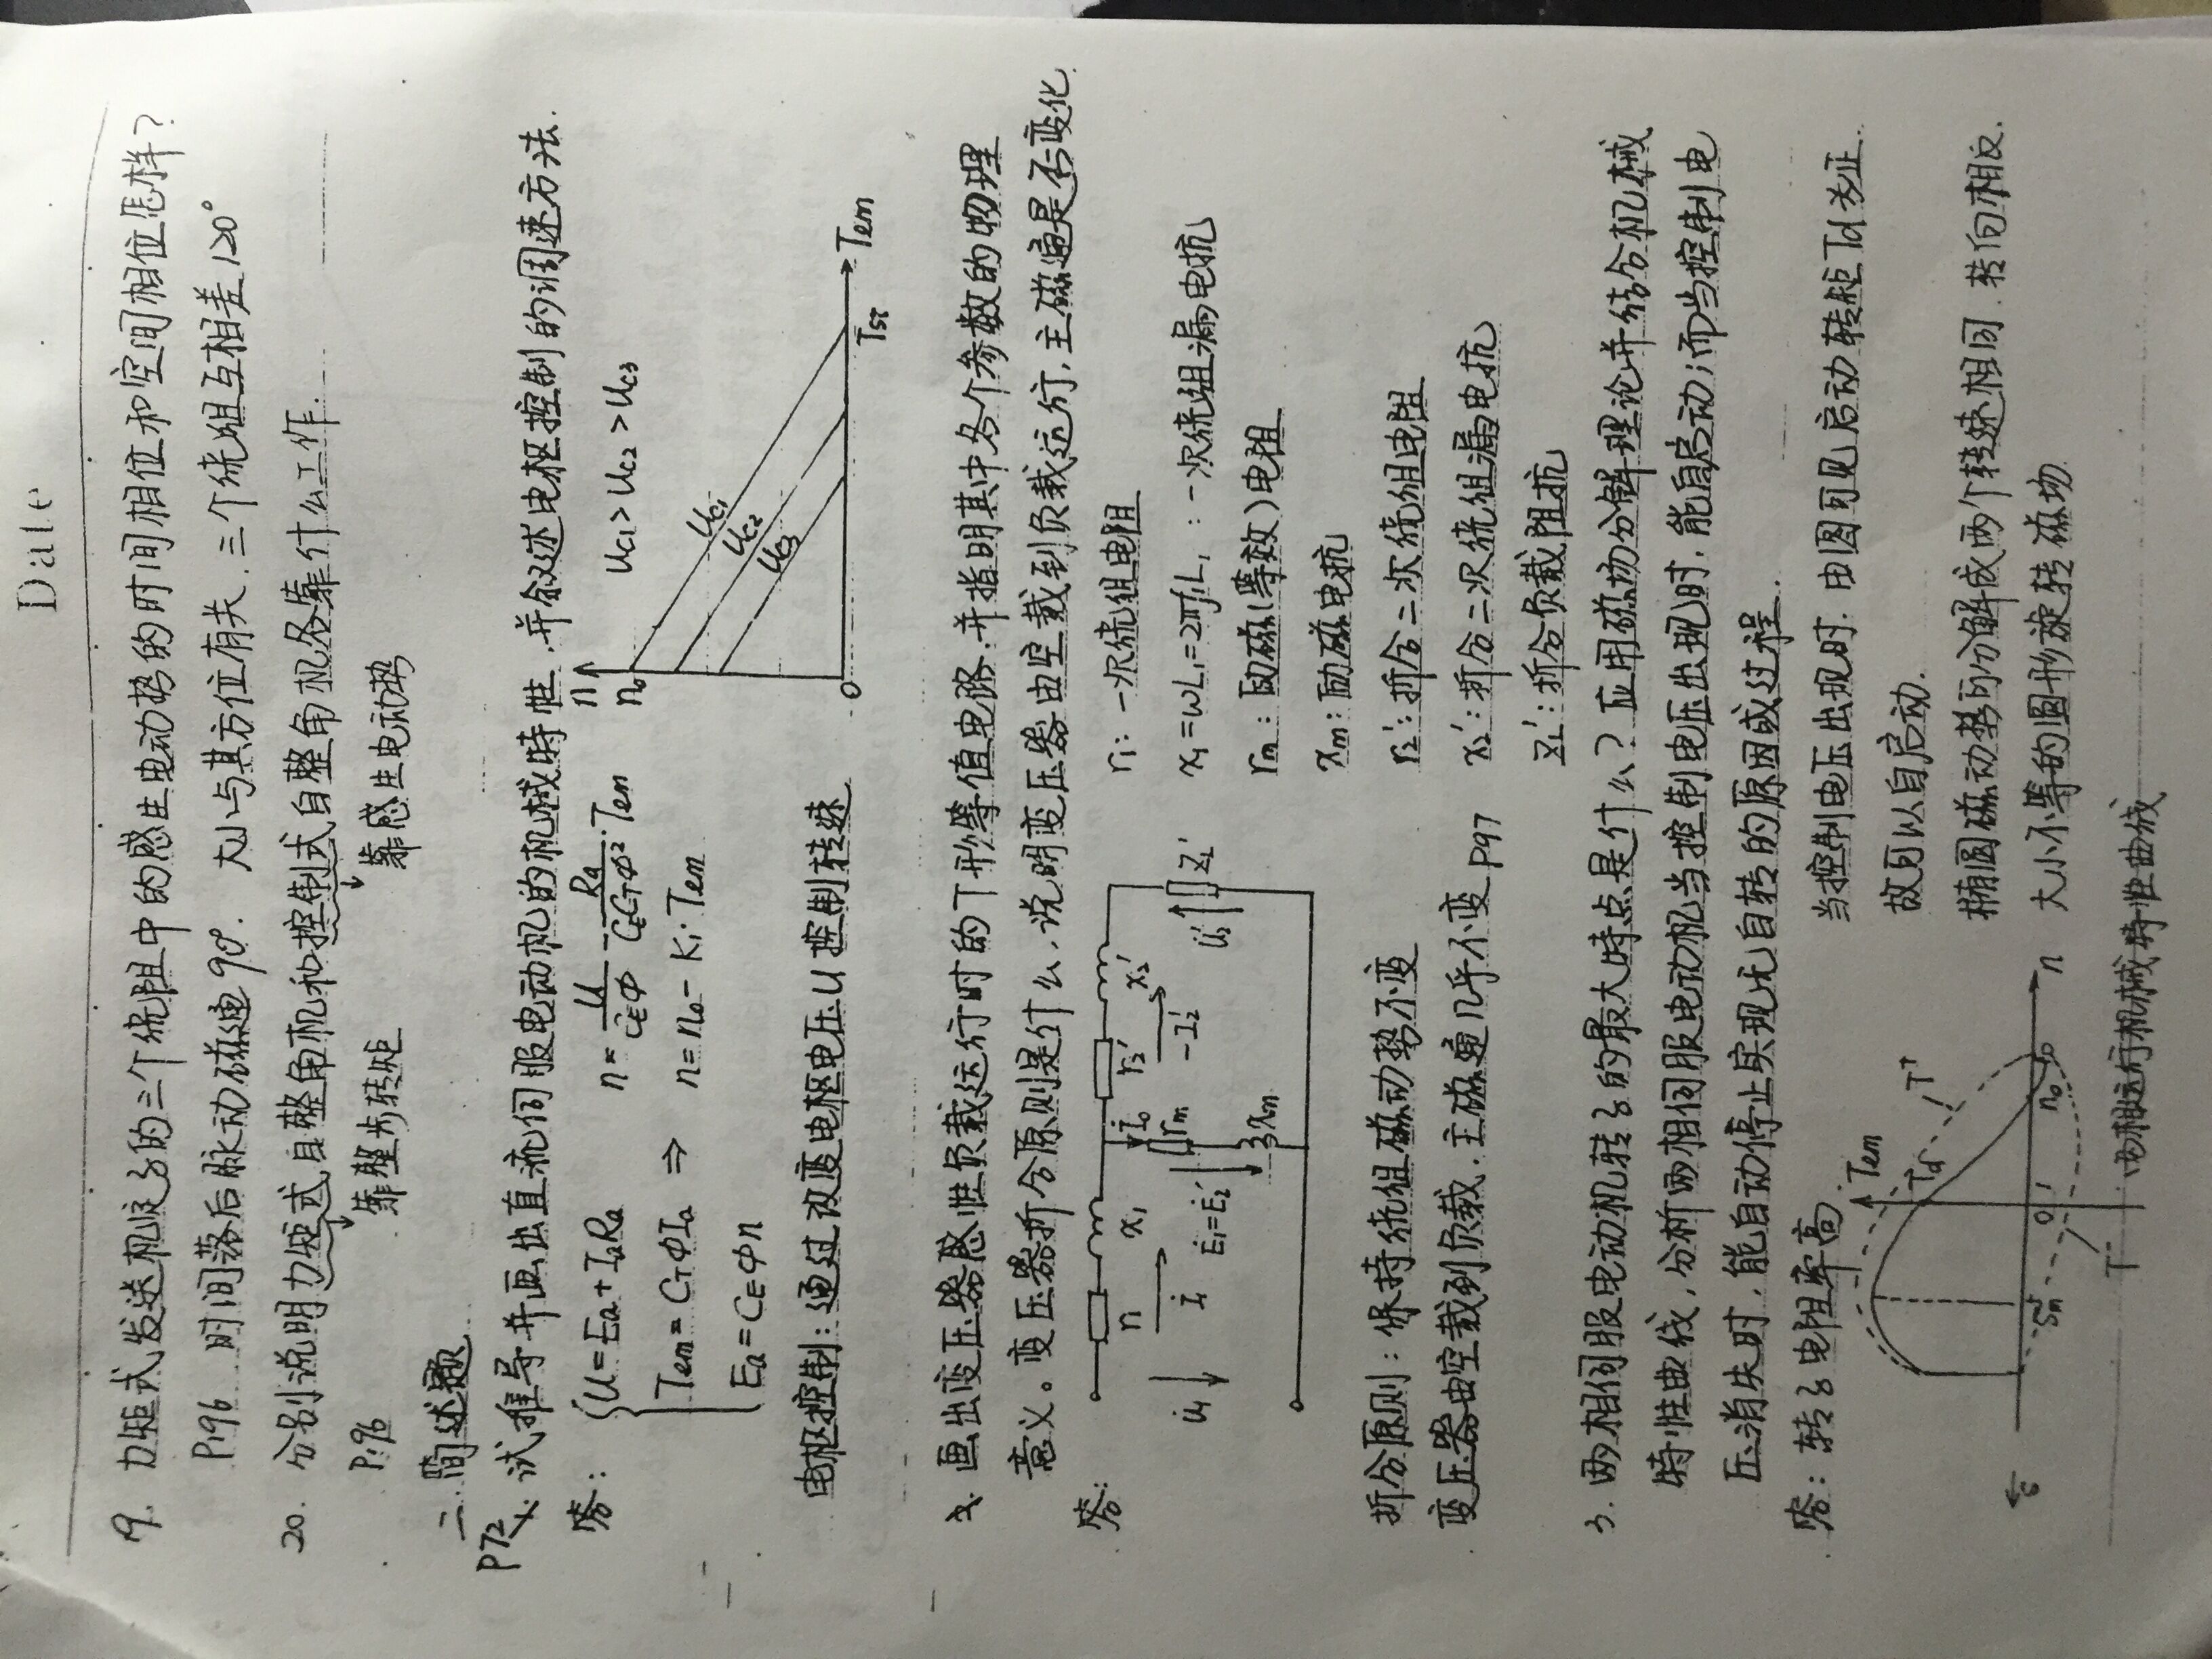 Date
19. 力矩式发送机定子的三个绕阻中的感生电动势的时间相位和空间相位怎样?
P196 时间落后脉动磁通90°. 大小与其方位有关,三个绕组互相差120°
20. 分别说明力矩式自整角机和控制式自整角机各靠什么工作.
P196 靠整步转矩 靠感生电动势
二.简述题
P72
1. 试推导并画出直流伺服电动机的机械特性,并叙述电枢控制的调速方法.
答: U=Ea+IaRa n=U/(CEΦ)-Ra/(CECTΦ²)·Tem
Tem=CTΦIa ⇒ n=n₀-K₁·Tem
Ea=CEΦn
n
n₀
UC1>UC2>UC3
UC1
UC2
UC3
0 TST Tem
电枢控制:通过改变电枢电压U控制转速
2. 画出变压器感性负载运行时的T形等值电路,并指明其中各个参数的物理
意义。变压器折合原则是什么,说明变压器由空载到负载运行,主磁通是否变化
答:
r₁ x₁ İ₀ r₂' x₂'
U̇₁ İ₁ Ė₁=Ė₂' rm -İ₂' U̇₂' ZL'
xm
r₁: 一次绕组电阻
x₁=ωL₁=2πf₁L₁ : 一次绕组漏电抗
rm: 励磁(等效)电阻
xm: 励磁电抗
折合原则: 保持绕组磁动势不变
变压器由空载到负载,主磁通几乎不变 P97
r₂': 折合二次绕组电阻
x₂': 折合二次绕组漏电抗
ZL': 折合负载阻抗
3. 两相伺服电动机转子的最大特点是什么?应用磁场分解理论并结合机械
特性曲线,分析两相伺服电动机当控制电压出现时,能自启动;而当控制电
压消失时,能自动停止实现无自转的原因或过程.
答: 转子电阻率高.
Tem
Td T⁺
s Sm⁺ 0 1 n₀ n
T⁻
两相运行机械特性曲线
当控制电压出现时.由图可见启动转矩Td为正.
故可以自启动.
椭圆磁动势可分解成两个转速相同.转向相反.
大小不等的圆形旋转磁场.